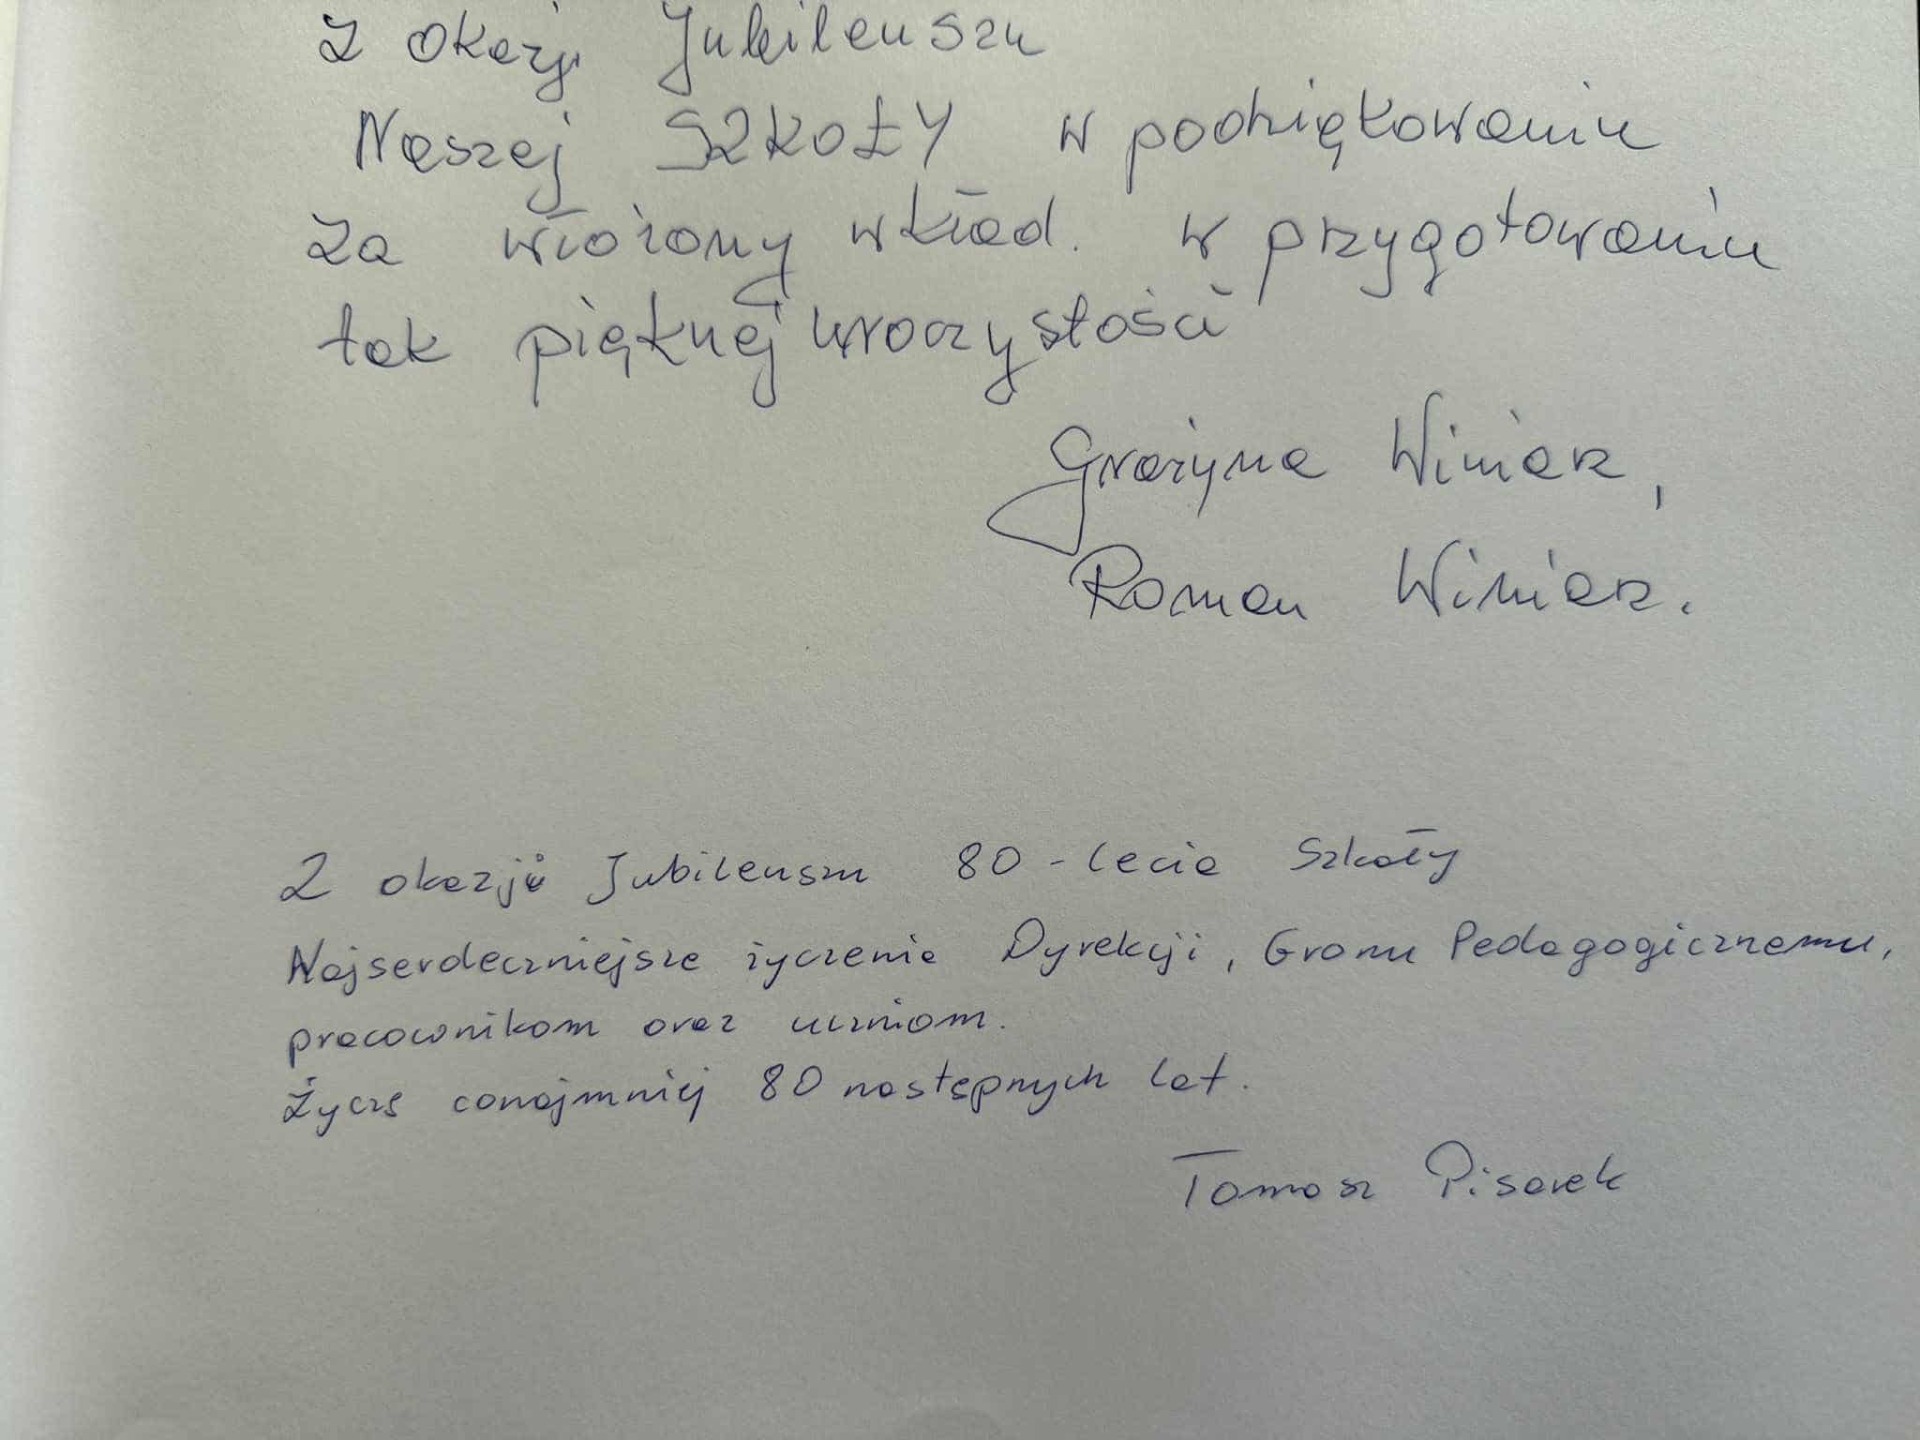 Z okazji Jubileuszu
Naszej SZKOŁY w podziękowaniu
za włożony wkład. w przygotowaniu
tak pięknej uroczystości
Grażyna Winiarz,
Roman Winiarz.
Z okazji Jubileuszu 80-lecia Szkoły
Najserdeczniejsze życzenia Dyrekcji, Gronu Pedagogicznemu,
pracownikom oraz uczniom.
Życzę conajmniej 80 następnych lat.
Tomasz Pisarek